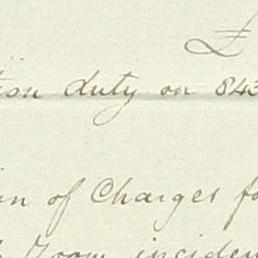 £
tion duty on 843
n of Charges fo
Room inciden